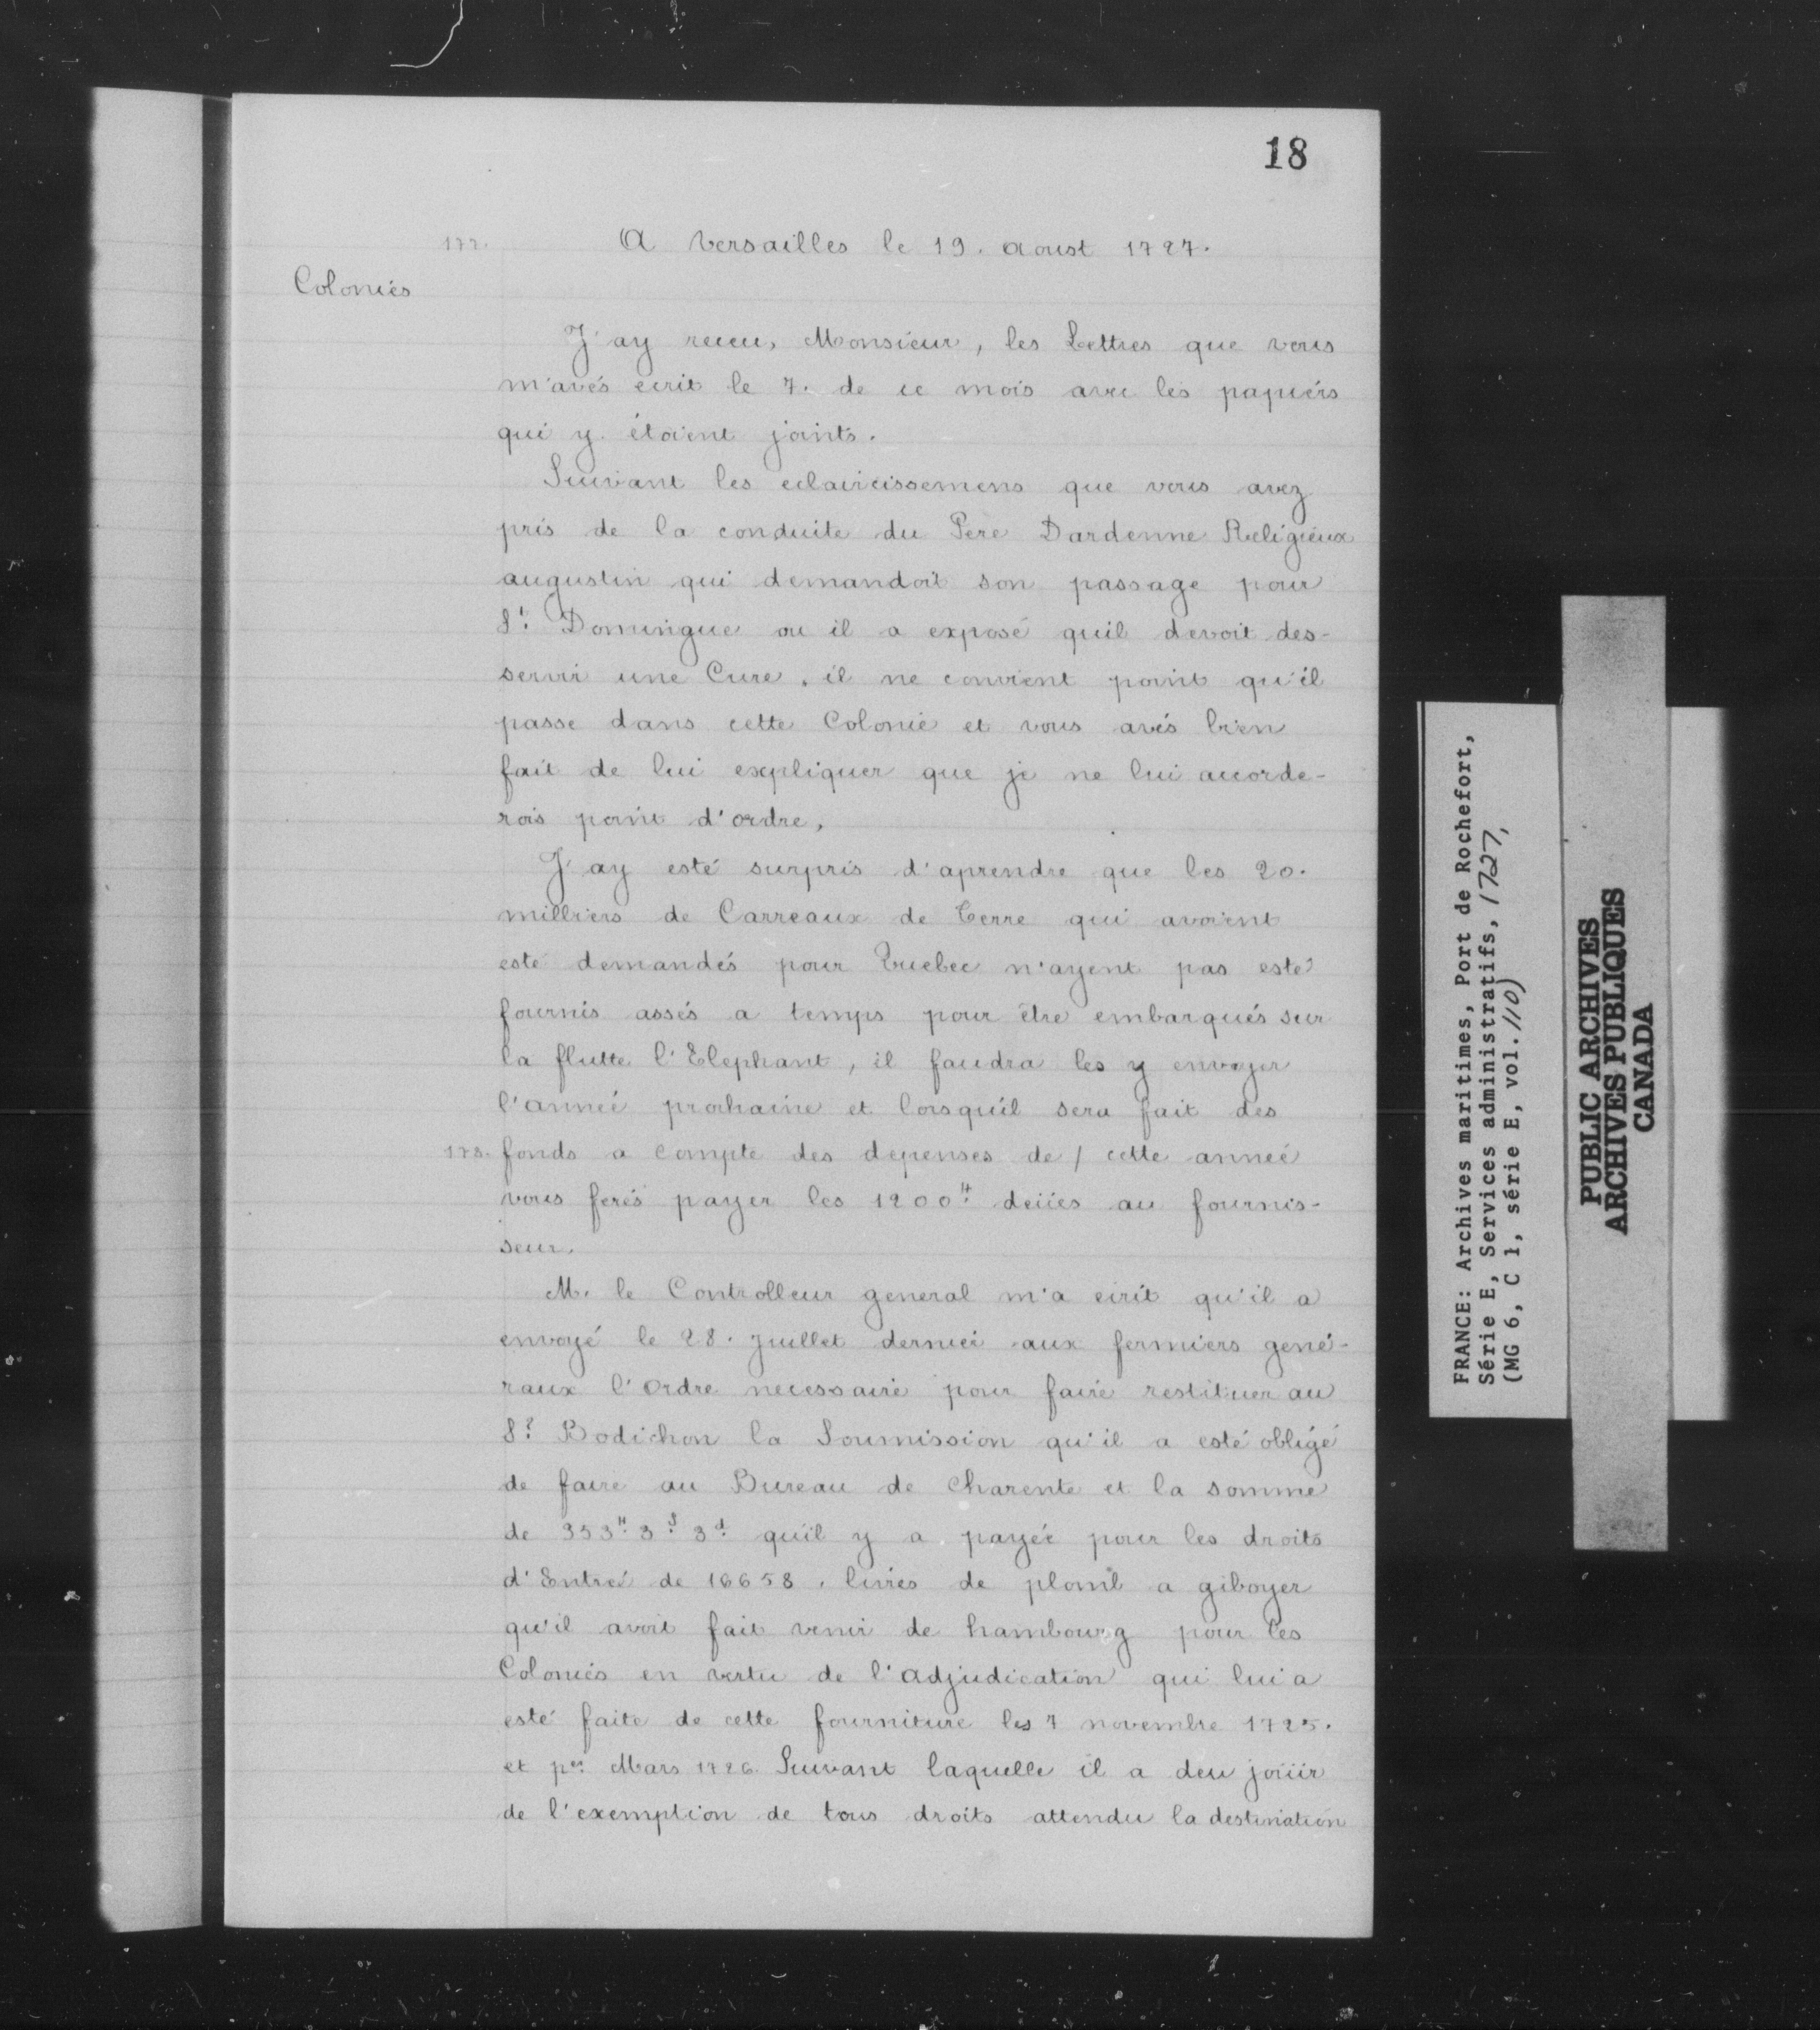 18
177. A Versailles le 19. Aoust 1727.
Colonies
J'ay receu, Monsieur, les Lettres que vous
m'avés ecrit le 7. de ce mois avec les papiers
qui y étoient joints.
Suivant les eclaircissemens que vous avez
pris de la conduite du Pere Dardenne Religieux
augustin qui demandoit son passage pour
St. Domingue ou il a exposé quil devoit des-
servir une Cure, il ne convient point qu'il
passe dans cette Colonie et vous avés bien
fait de lui expliquer que je ne lui accorde-
rois point d'ordre,
J'ay esté surpris d'aprendre que les 20.
milliers de Carreaux de Terre qui avoient
esté demandés pour Quebec n'ayent pas esté
fournis assés a temps pour être embarqués sur
la flutte l'Elephant, il faudra les y envoyer
l'année prochaine et lorsquil sera fait des
178. fonds a compte des depenses de / cette année
vous ferés payer les 1200tt. deües au fournis-
seur.
M. le Controlleur general m'a ecrit qu'il a
envoyé le 28. Juillet dernier aux fermiers gené-
raux l'Ordre necessaire pour faire restituer au
Sr. Bodichon la Soumission qu'il a esté obligé
de faire au Bureau de Charente et la somme
de 353tt. 3s. 3d. qu'il y a payée pour les droits
d'Entreé de 16658. livres de plomb a giboyer
qu'il avoit fait venir de hambourg pour les
Colonies en vertu de l'adjudication qui lui a
esté faite de cette fourniture les 7 novembre 1725.
et per. Mars 1726. Suivant laquelle il a deu joüir
de l'exemption de tous droits attendu la destination
FRANCE: Archives maritimes, Port de Rochefort,
Série E, Services administratifs, 1727,
(MG 6, C 1, série E, vol. 110)
PUBLIC ARCHIVES
ARCHIVES PUBLIQUES
CANADA